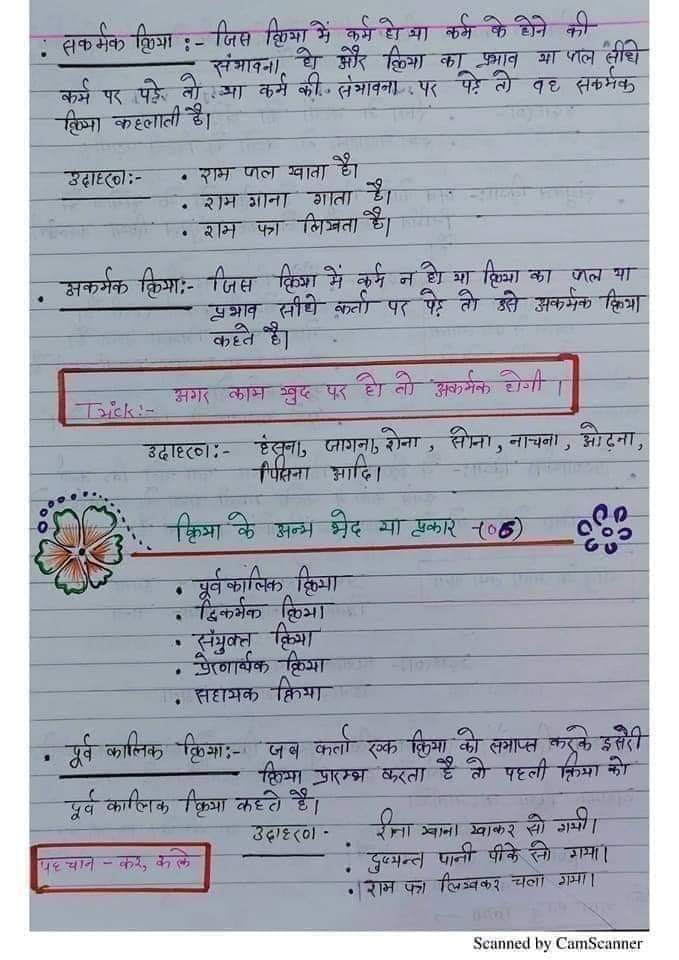 सकर्मक क्रिया :- जिस क्रिया में कर्म हो या कर्म के होने की
संभावना हो और क्रिया का प्रभाव या फल सीधे
कर्म पर पड़े तो या कर्म की संभावना पर पड़े तो वह सकर्मक
क्रिया कहलाती है।
उदाहरण:- • राम फल खाता है।
• राम गाना गाता है।
• राम पत्र लिखता है।
• अकर्मक क्रिया:- जिस क्रिया में कर्म न हो या क्रिया का फल या
प्रभाव सीधे कर्ता पर पड़े तो उसे अकर्मक क्रिया
कहते है।
अगर काम खुद पर हो तो अकर्मक होगी ।
Trick:-
उदाहरण:- हंसना, जागना, रोना, सोना, नाचना, ओढ़ना,
पिसना आदि।
क्रिया के अन्य भेद या प्रकार -(05)
• पूर्वकालिक क्रिया
• द्विकर्मक क्रिया
• संयुक्त क्रिया
• प्रेरणार्थक क्रिया
• सहायक क्रिया
• पूर्व कालिक क्रिया:- जब कर्ता एक क्रिया को समाप्त करके दूसरी
क्रिया प्रारम्भ करता है तो पहली क्रिया को
पूर्व कालिक क्रिया कहते है।
उदाहरण - • रीना खाना खाकर सो गयी।
• दुष्यन्त पानी पीके सो गया।
• राम पत्र लिखकर चला गया।
पहचान - कर, के
Scanned by CamScanner